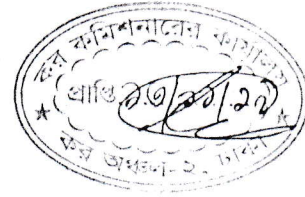 কর কমিশনারের কার্যালয়
প্রাপ্তি
কর অঞ্চল-২, ঢাকা